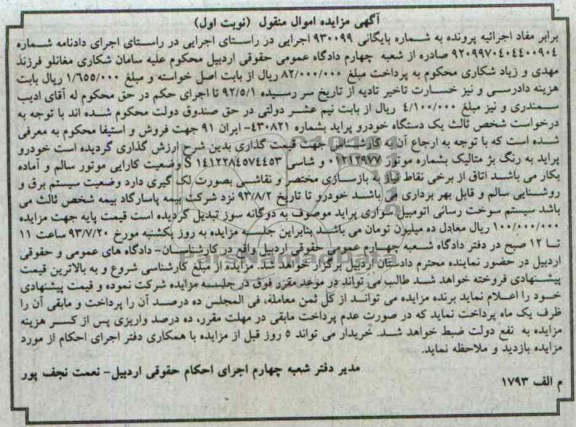 آگهی مزایده اموال منقول (نوبت اول)
برابر مفاد اجرائیه پرونده به شماره بایگانی ۹۳۰۰۹۹ اجرایی در راستای اجرایی در راستای اجرای دادنامه شماره
۹۲۰۹۹۷۰۴۰۴۴۰۰۹۰۴ صادره از شعبه چهارم دادگاه عمومی حقوقی اردبیل محکوم علیه سامان شکاری مغانلو فرزند
مهدی و زیاد شکاری محکوم به پرداخت مبلغ ۸۲/۰۰۰/۰۰۰ ریال از بابت اصل خواسته و مبلغ ۱/۶۵۵/۰۰۰ ریال بابت
هزینه دادرسی و نیز خسارت تاخیر تادیه از تاریخ سر رسیده ۹۲/۵/۱ تا اجرای حکم در حق محکوم له آقای ادیب
سمندری و نیز مبلغ ۴/۱۰۰/۰۰۰ ریال از بابت نیم عشر دولتی در حق صندوق دولت محکوم شده اند با توجه به
درخواست شخص ثالث یک دستگاه خودرو پراید بشماره ۴۳۰۸۲۱- ایران ۹۱ جهت فروش و استیفا محکوم به معرفی
شده است که با توجه به ارجاع آن به کارشناس جهت قیمت گذاری بدین شرح ارزش گذاری گردیده است خودرو
پراید به رنگ بژ متالیک بشماره موتور ۰۱۲۱۲۹۷۷ و شاسی S ۱۴۱۲۲۸۴۵۷۴۴۵۳ وضعیت کارایی موتور سالم و آماده
بکار می باشد اتاق از برخی نقاط نیاز به بازسازی مختصر و نقاشی بصورت لکه گیری دارد وضعیت سیستم برق و
روشنایی سالم و قابل بهر برداری می باشد خودرو تا تاریخ ۹۳/۸/۲ نزد شرکت بیمه پاسارگاد بیمه شخص ثالث می
باشد سیستم سوخت رسانی اتومبیل سواری پراید موصوف به دوگانه سوز تبدیل گردیده است قیمت پایه جهت مزایده
۱۰۰/۰۰۰/۰۰۰ ریال معادل ده میلیون تومان می باشد بنابراین جلسه مزایده به روز یکشنبه مورخ ۹۳/۷/۲۰ ساعت ۱۱
تا ۱۲ صبح در دفتر دادگاه شعبه چهارم عمومی حقوقی اردبیل واقع در کارشناسان- دادگاه های عمومی و حقوقی
اردبیل در حضور نماینده محترم دادستان اردبیل برگزار خواهد شد. مزایده از مبلغ کارشناسی شروع و به بالاترین قیمت
پیشنهادی فروخته خواهد شد طالب می تواند در موعد مقرر فوق در جلسه مزایده شرکت نموده و قیمت پیشنهادی
خود را اعلام نماید برنده مزایده می تواند از کل ثمن معامله، فی المجلس ده درصد آن را پرداخت و مابقی آن را
ظرف یک ماه پرداخت نماید که در صورت عدم پرداخت مابقی در مهلت مقرره ده درصد واریزی پس از کسر هزینه
مزایده به نفع دولت ضبط خواهد شد. خریدار می تواند ۵ روز قبل از مزایده با همکاری دفتر اجرای احکام از مورد
مزایده بازدید و ملاحظه نماید.
مدیر دفتر شعبه چهارم اجرای احکام حقوقی اردبیل- نعمت نجف پور
م الف ۱۷۹۳